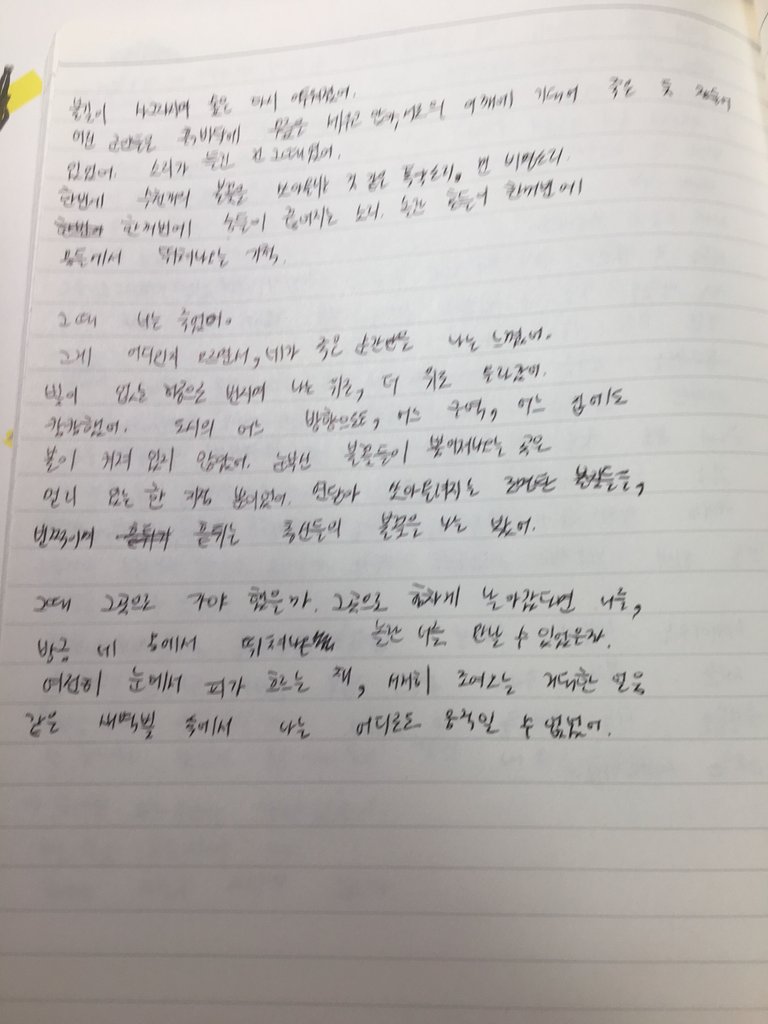 불길이 사그라지며 숲은 다시 어두워졌어.
어린 군인들은 흙바닥에 무릎을 세우고 앉아, 서로의 어깨에 기대어 죽은 듯 잠들어
있었어. 소리가 들린 건 그때였어.
한번에 수천개의 불꽃을 쏘아올리는 것 같은 폭약소리, 먼 비명소리.
한꺼번에 숨들이 끊어지는 소리. 놀란 혼들이 한꺼번에
몸들에서 뛰쳐나오는 기척.
그때 너는 죽었어.
그게 어디인지 모르면서, 네가 죽은 순간만을 나는 느꼈어.
빛이 없는 허공으로 번지며 나는 위로, 더 위로 올라갔어.
캄캄했어. 도시의 어느 방향으로도, 어느 구역, 어느 집에도
불이 켜져 있지 않았어. 눈부신 불꽃들이 뿜어져나오는 곳은
멀리 있는 한 지점 뿐이었어. 연달아 쏘아올려지는 조명탄 불빛들을,
번쩍이며 흩튀는 총신들의 불꽃을 나는 봤어.
그때 그곳으로 가야 했을까. 그곳으로 힘차게 날아갔다면 너를,
방금 네 몸에서 뛰쳐나온 놀란 너를 만날 수 있었을까.
여전히 눈에서 피가 흐르는 채, 서서히 조여오는 거대한 얼음
같은 새벽빛 속에서 나는 어디로도 움직일 수 없었어.